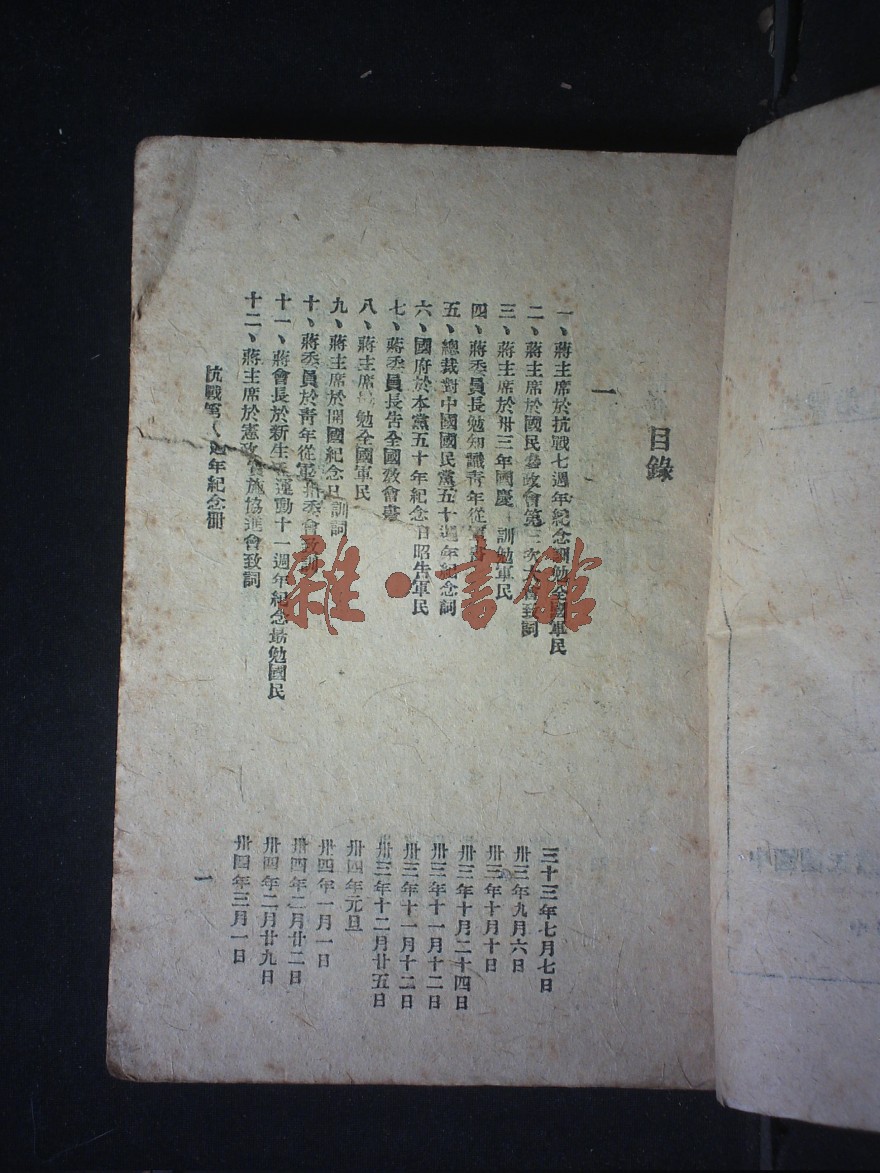 目錄
一
一、蔣主席於抗戰七週年紀念訓勉全國軍民 三十三年七月七日
二、蔣主席於國民參政會第三次大會致詞 卅三年九月六日
三、蔣主席於卅三年國慶訓勉軍民 卅三年十月十日
四、蔣委員長勉知識青年從軍 卅三年十月二十四日
五、總裁對中國國民黨五十週年紀念詞 卅三年十一月十二日
六、國府於本黨五十年紀念日昭告軍民 卅三年十一月十二日
七、蔣委員長告全國教會書 卅三年十二月廿五日
八、蔣主席勉全國軍民 卅四年元旦
九、蔣主席於開國紀念日訓詞 卅四年一月一日
十、蔣委員於青年從軍委會致訓 卅四年二月廿二日
十一、蔣會長於新生運動十一週年紀念勗勉國民 卅四年二月廿九日
十二、蔣主席於憲政實施協進會致詞 卅四年三月一日
抗戰第八週年紀念冊 一
雜·書館